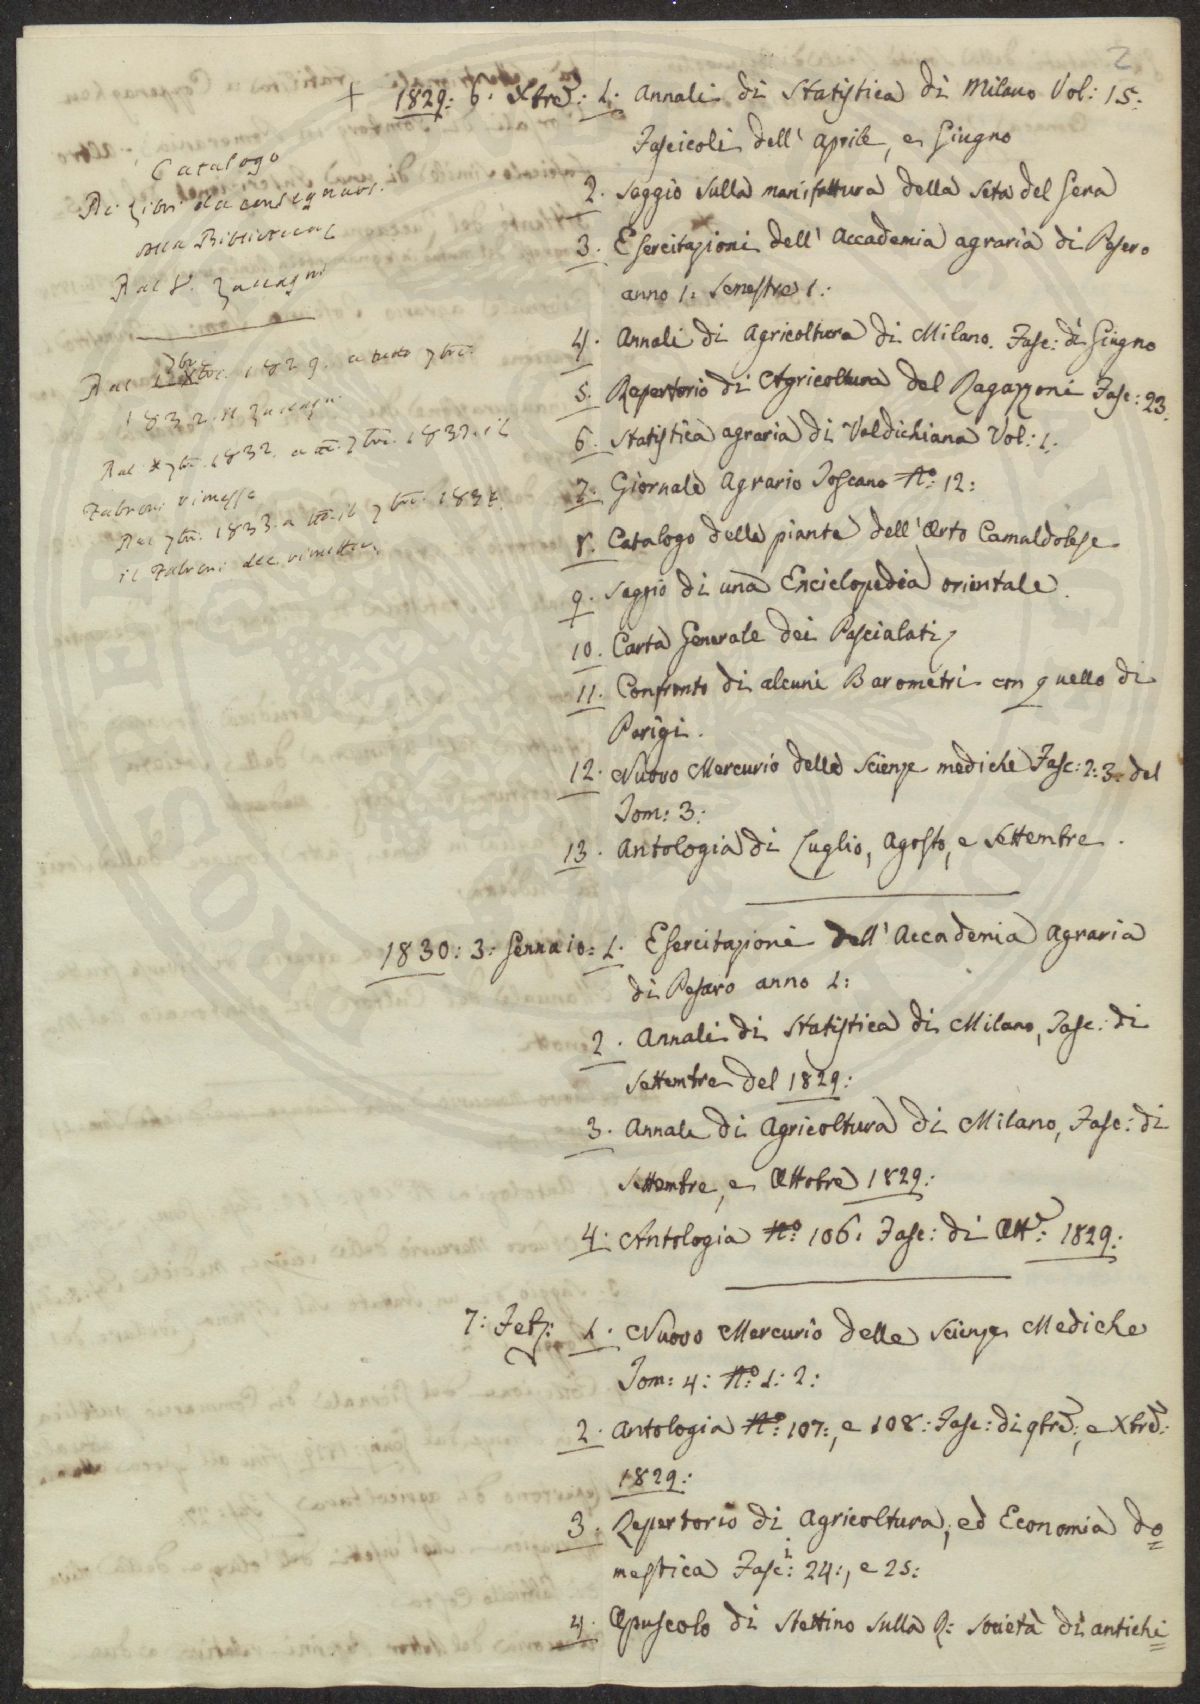 2
+ 1829: 6. Xbrē: 1. Annali di Statistica di Milano Vol: 15:
Fascicoli dell' Aprile, e Giugno
2. Saggio sulla manifattura della seta del Gera
3. Esercitazioni dell' Accademia agraria di Pesero
anno 1: Semestre 1:
4. Annali di Agricoltura di Milano. Fasc: di Giugno
5. Repertorio di Agricoltura del Ragazzoni Fasc: 23.
6. Statistica agraria di Valdichiana Vol: 1:
7. Giornale Agrario Toscano No: 12:
8. Catalogo delle piante dell' Orto Camaldolese
9. Saggio di una Enciclopedia orientale.
10. Carta Generale dei Pascialati
11. Confronto di alcuni Barometri con quello di
Parigi.
12. Nuovo Mercurio delle Scienze mediche Fasc: 2: 3. del
Tom: 3:
13. Antologia di Luglio, Agosto, e Settembre.
Catalogo
Dei Libri da consegnarsi
alla Biblioteca
Dal S. Zuccagni
Dal 1832. il Zuccagni
Dal 7bre. 1832. a 7bre. 1833. il
Fabroni rimesse
Dal 7bre. 1833. a 7bre. 1834.
il Fabroni dee rimettere
1830: 3: Gennaio: 1. Esercitazioni dell' Accademia Agraria
di Pesaro anno 1:
2. Annali di Statistica di Milano, Fasc: di
Settembre del 1829:
3. Annale di Agricoltura di Milano, Fasc: di
Settembre, e Ottobre 1829:
4: Antologia No: 106. Fasc: di Ott: 1829:
7: Feb: 1. Nuovo Mercurio delle Scienze Mediche
Tom: 4: No: 1: 2:
2. Antologia No: 107:, e 108: Fasc: di 9brē:, e Xbrē:
1829:
3: Repertorio di Agricoltura, ed Economia do=
mestica Fasci: 24:, e 25:
4. Opuscolo di Stettino sulla R: Società di antichi=